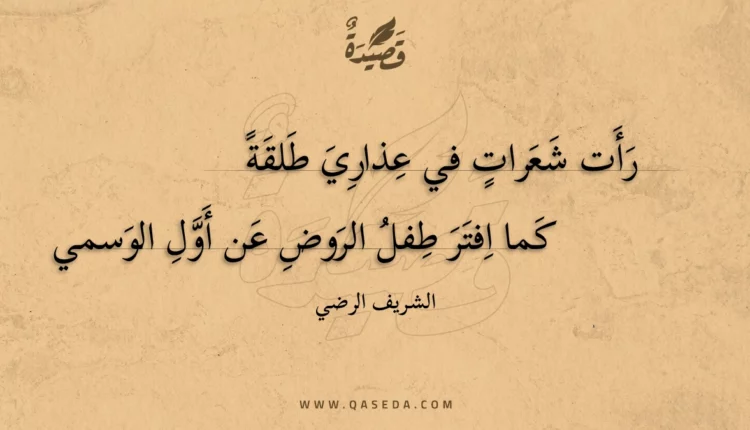 قَصِيْدَةٌ
رَأَت شَعَراتٍ في عِذارِيَ طَلقَةً
كَما اِفتَرَ طِفلُ الرَوضِ عَن أَوَّلِ الوَسمي
الشريف الرضي
WWW.QASEDA.COM